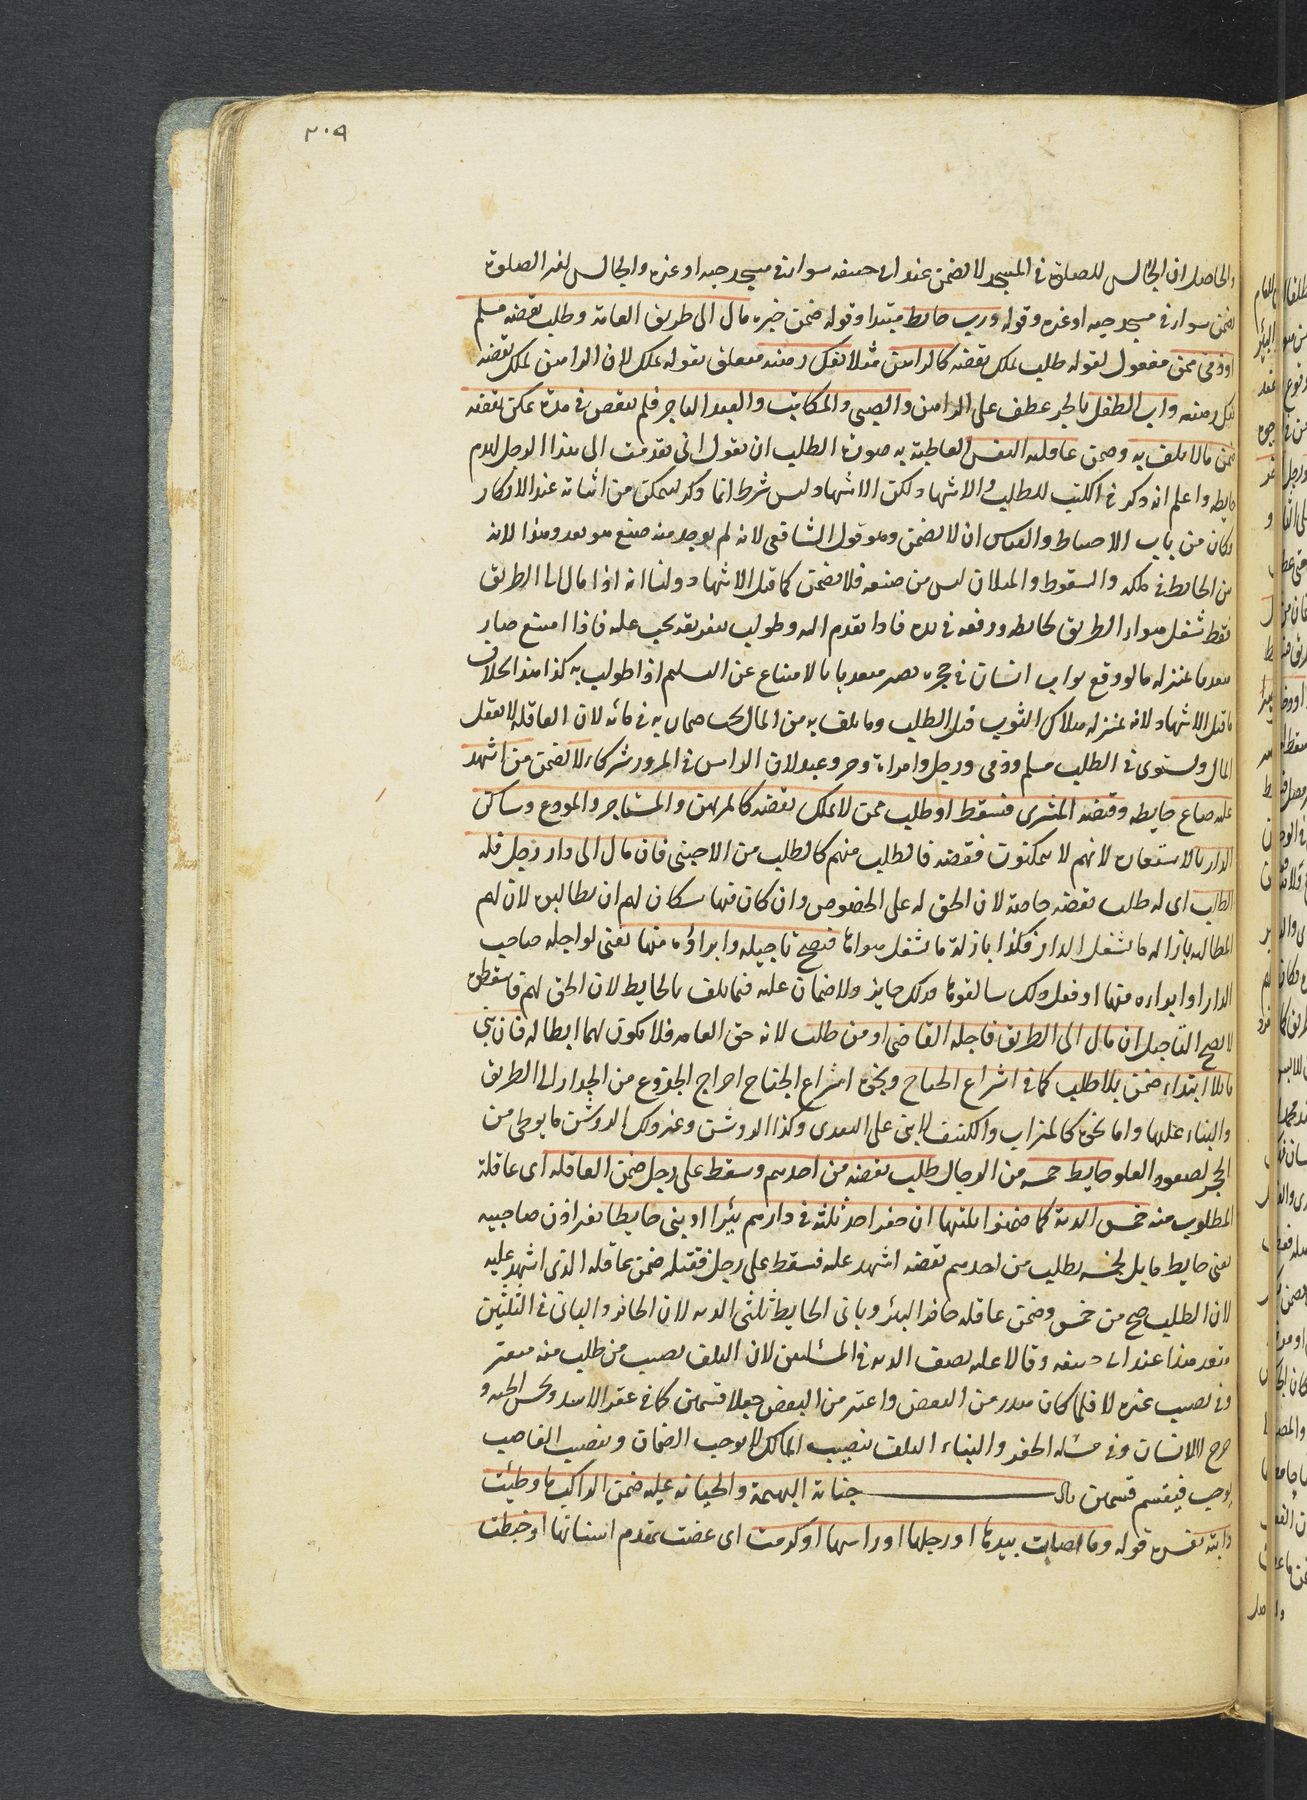 ٢٠٩
والحاصل ان الجالس للصلوة في المسجد لا يضمن عند ابي حنيفه سواء في مسجد حيه او غيره والجالس لغير الصلوة
يضمن سواء في مسجد حيه او غيره وقوله ورب حايط مبتدا وقوله ضمن خبره مال الى طريق العامة وطلب نقضه مسلم
او ذمي ممن مفعول لقوله طلب يملك نقضه كالراهن مثلا بفك رهنه متعلق بقوله يملك لان الراهن يملك نقضه
بفك رهنه واب الطفل بالجر عطف على الراهن والصبي والمكاتب والعبد التاجر فلم ينقض في مدة يمكن نقضه
ضمن مالا تلف به وضمن عاقلته النفس العاطبة به صورة الطلب ان يقول اني تقدمت الى هذا الرجل لهدم
حايطه واعلم انه ذكر في الكتب للطلب والاشهاد لكن الاشهاد ليس شرط انما ذكر ليتمكن من اثباته عند الانكار
وكان من باب الاحتياط والقياس ان لا يضمن وهو قول الشافعي لانه لم يوجد منه صنع هو تعد وهذا لانه
بنى الحايط في ملكه والسقوط والميلان ليس من صنعه فلا يضمن كما قبل الاشهاد ولنا انه اذا مال الى الطريق
فقط شغل هواء الطريق بحايطه ورفعه في يده فاذا تقدم اليه وطولب بتفريغه يجب عليه فاذا امتنع صار
متعديا بمنزلة مالو وقع ثوب انسان في حجره يصير متعديا بالامتناع عن التسليم اذا طولب به كذا هذا بخلاف
ما قبل الاشهاد لانه بمنزلة هلاك الثوب قبل الطلب وما تلف به من المال يجب ضمان به في ماله لان العاقلة لا تعقل
المال ويستوي في الطلب مسلم وذمي ورجل وامراة وحر وعبد لان الناس في المرور شركاء لا يضمن من اشهد
عليه فباع حايطه وقبضه المشتري فسقط او طلب ممن لا يملك نقضه كالمرتهن والمستاجر والمودع وساكن
الدار بالاستعارة لانهم لا يتمكنون فنقضه فالطلب منهم كالطلب من الاجنبي فان مال الى دار رجل فله
الطلب اي له طلب نقضه خاصة لان الحق له على الخصوص وان كان فيها سكان لهم ان يطالبوه لان لهم
المطالبة بازالة ما شغل الدار فكذا بازالة ما شغل هواءها فيصح تاجيله وابراؤه منها يعني لو اجله صاحب
الدار او ابراءه منها او فعل ذلك ساكنوها فذلك جايز ولا ضمان عليه فيما تلف بالحايط لان الحق لهم فاسقطوه
لا يصح التاجيل ان مال الى الطريق فاجله القاضي او من طلب لانه حق العامة فلا يكون لهما ابطاله فان بنى
مائلا ابتداء ضمن بلا طلب كما في اشراع الجناح ونحوه اشراع الجناح اخراج الجذوع من الجدار الى الطريق
والبناء عليها واما نحوه كالميزاب والكنيف لا بنى على التعدي وكذا الروشن وغير ذلك الروشن ما يوطى من
الجر لصعود العلو حايط خمسة من الرجال طلب نقضه من احدهم وسقط على رجل ضمن العاقلة اي عاقلة
المطلوب منه خمس الدية كما ضمنوا ثلثيها ان حفر احد ثلثة في دارهم بئرا او بنى حايطا بغير اذن صاحبيه
يعني حايط مايل لخمسة طلب من احدهم نقضه اشهد عليه فسقط على رجل فقتله ضمن عاقلة الذي اشهد عليه
لان الطلب صح من خمس وضمن عاقلة حافر البئر وباني الحايط ثلثي الدية لان الحافر والباني في الثلثين
متعد هذا عند ابي حنيفه وقالا عليه نصف الدية في المسئلتين لان التلف نصيب من طلب منه معتبر
وفي نصيب غيره لا فلما كان هدر من البعض واعتبر من البعض جعلا قسمين كما في عقر الاسد ونهش الحية و
جرح الانسان وفي مسئلة الحفر والبناء التلف بنصيب المالك لا يوجب الضمان وبنصيب الغاصب
يوجب فيقسم قسمين باب جناية البهيمة والجناية عليها ضمن الراكب ما وطئت
دابته تفسيره قوله وما اصابت بيدها او رجلها او راسها او كدمت اي عضت بمقدم اسنانها او خبطت